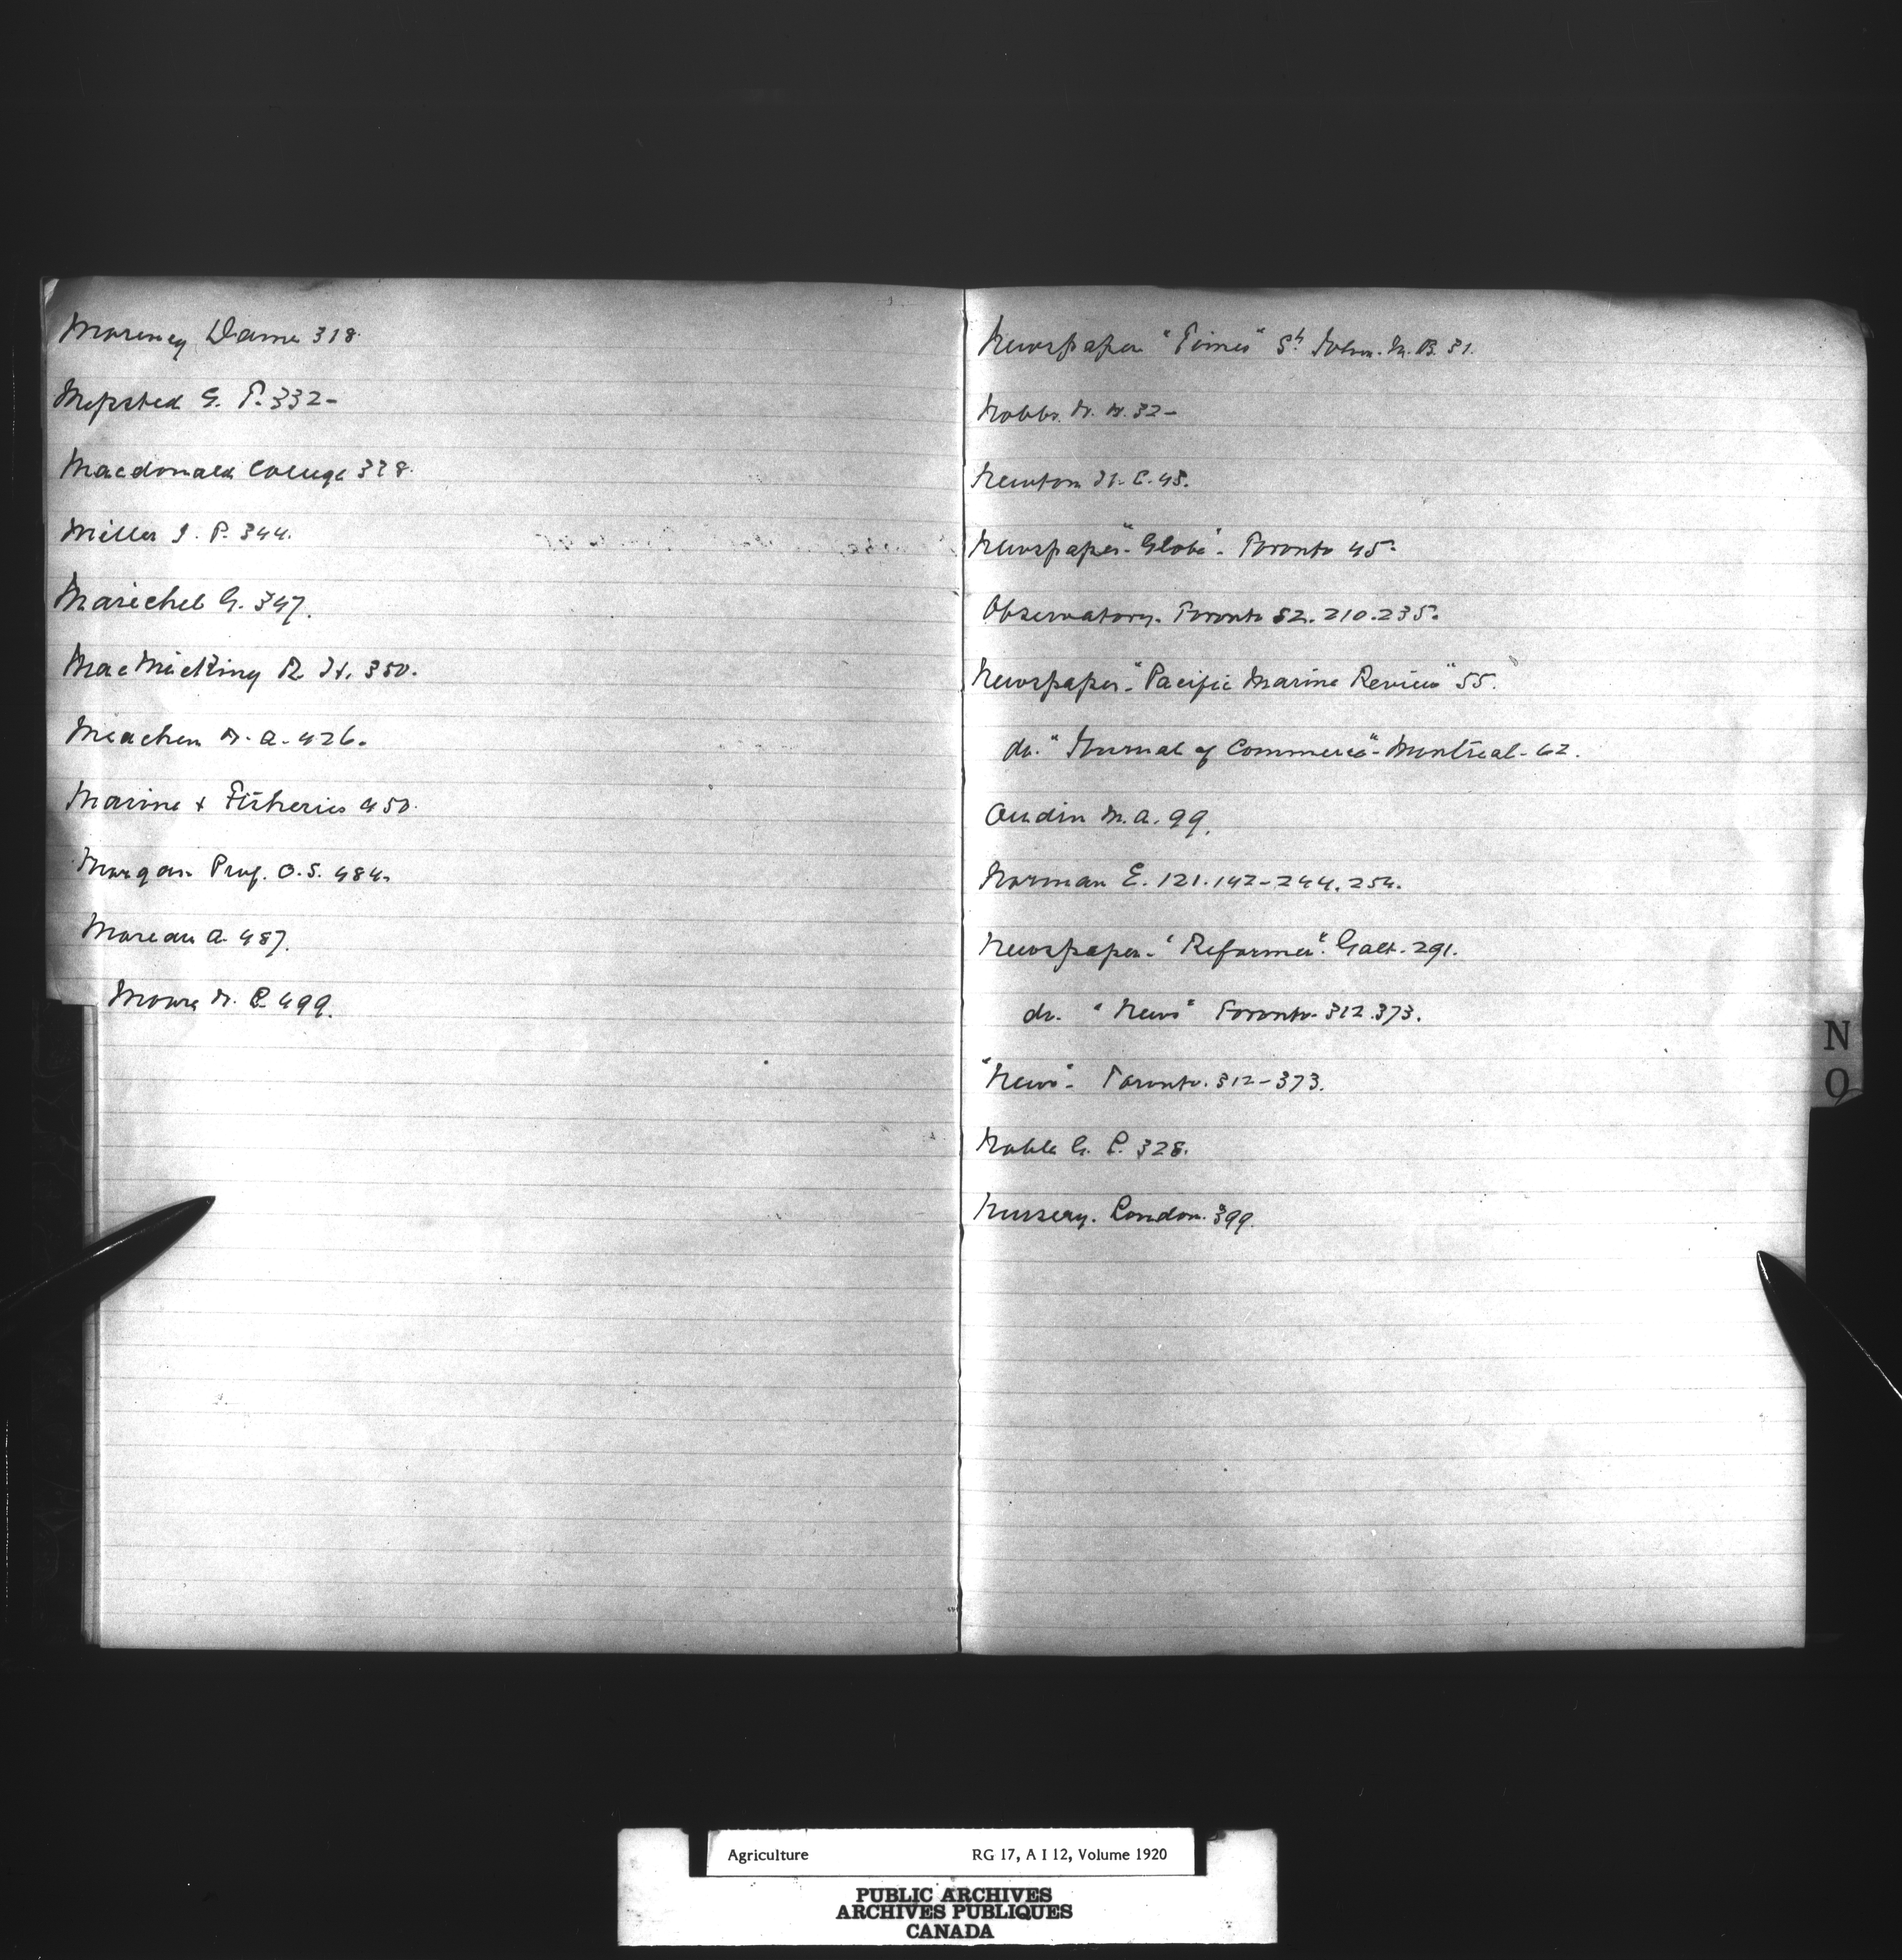 Mareney Dame 318.
Mepsted G. T. 332-
Macdonald College 338.
Miller I. P. 344.
Marichel G. 347.
MacMicking R. H. 350.
Meachen W. A. 426.
Marine & Fisheries 450.
Morgan Prof. O. S. 484.
Moreau A. 487.
Moore W. C. 499.
Newspaper "Times" St John. N. B. 31.
Nobbs. W. W. 32-
Newton H. C. 45.
Newspaper - "Globe". Toronto 45.
Observatory. Toronto 52. 210. 235.
Newspaper - "Pacific Marine Review" 55.
do. "Journal of Commerce" - Montreal - 62.
Oudin M. A. 99.
Norman E. 121. 142 - 244. 254.
Newspaper - "Reformer". Galt - 291.
do. "News" Toronto - 312. 373.
"News" - Toronto. 312 - 373.
Noble G. C. 328.
Nursery. London. 399.
N
O
Agriculture RG 17, A I 12, Volume 1920
PUBLIC ARCHIVES
ARCHIVES PUBLIQUES
CANADA